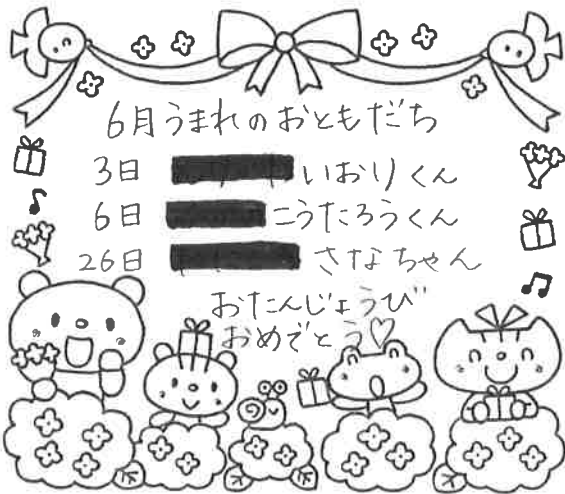 6月うまれのおともだち
3日 いおりくん
6日 こうたろうくん
26日 さなちゃん
おたんじょうび
おめでとう♡